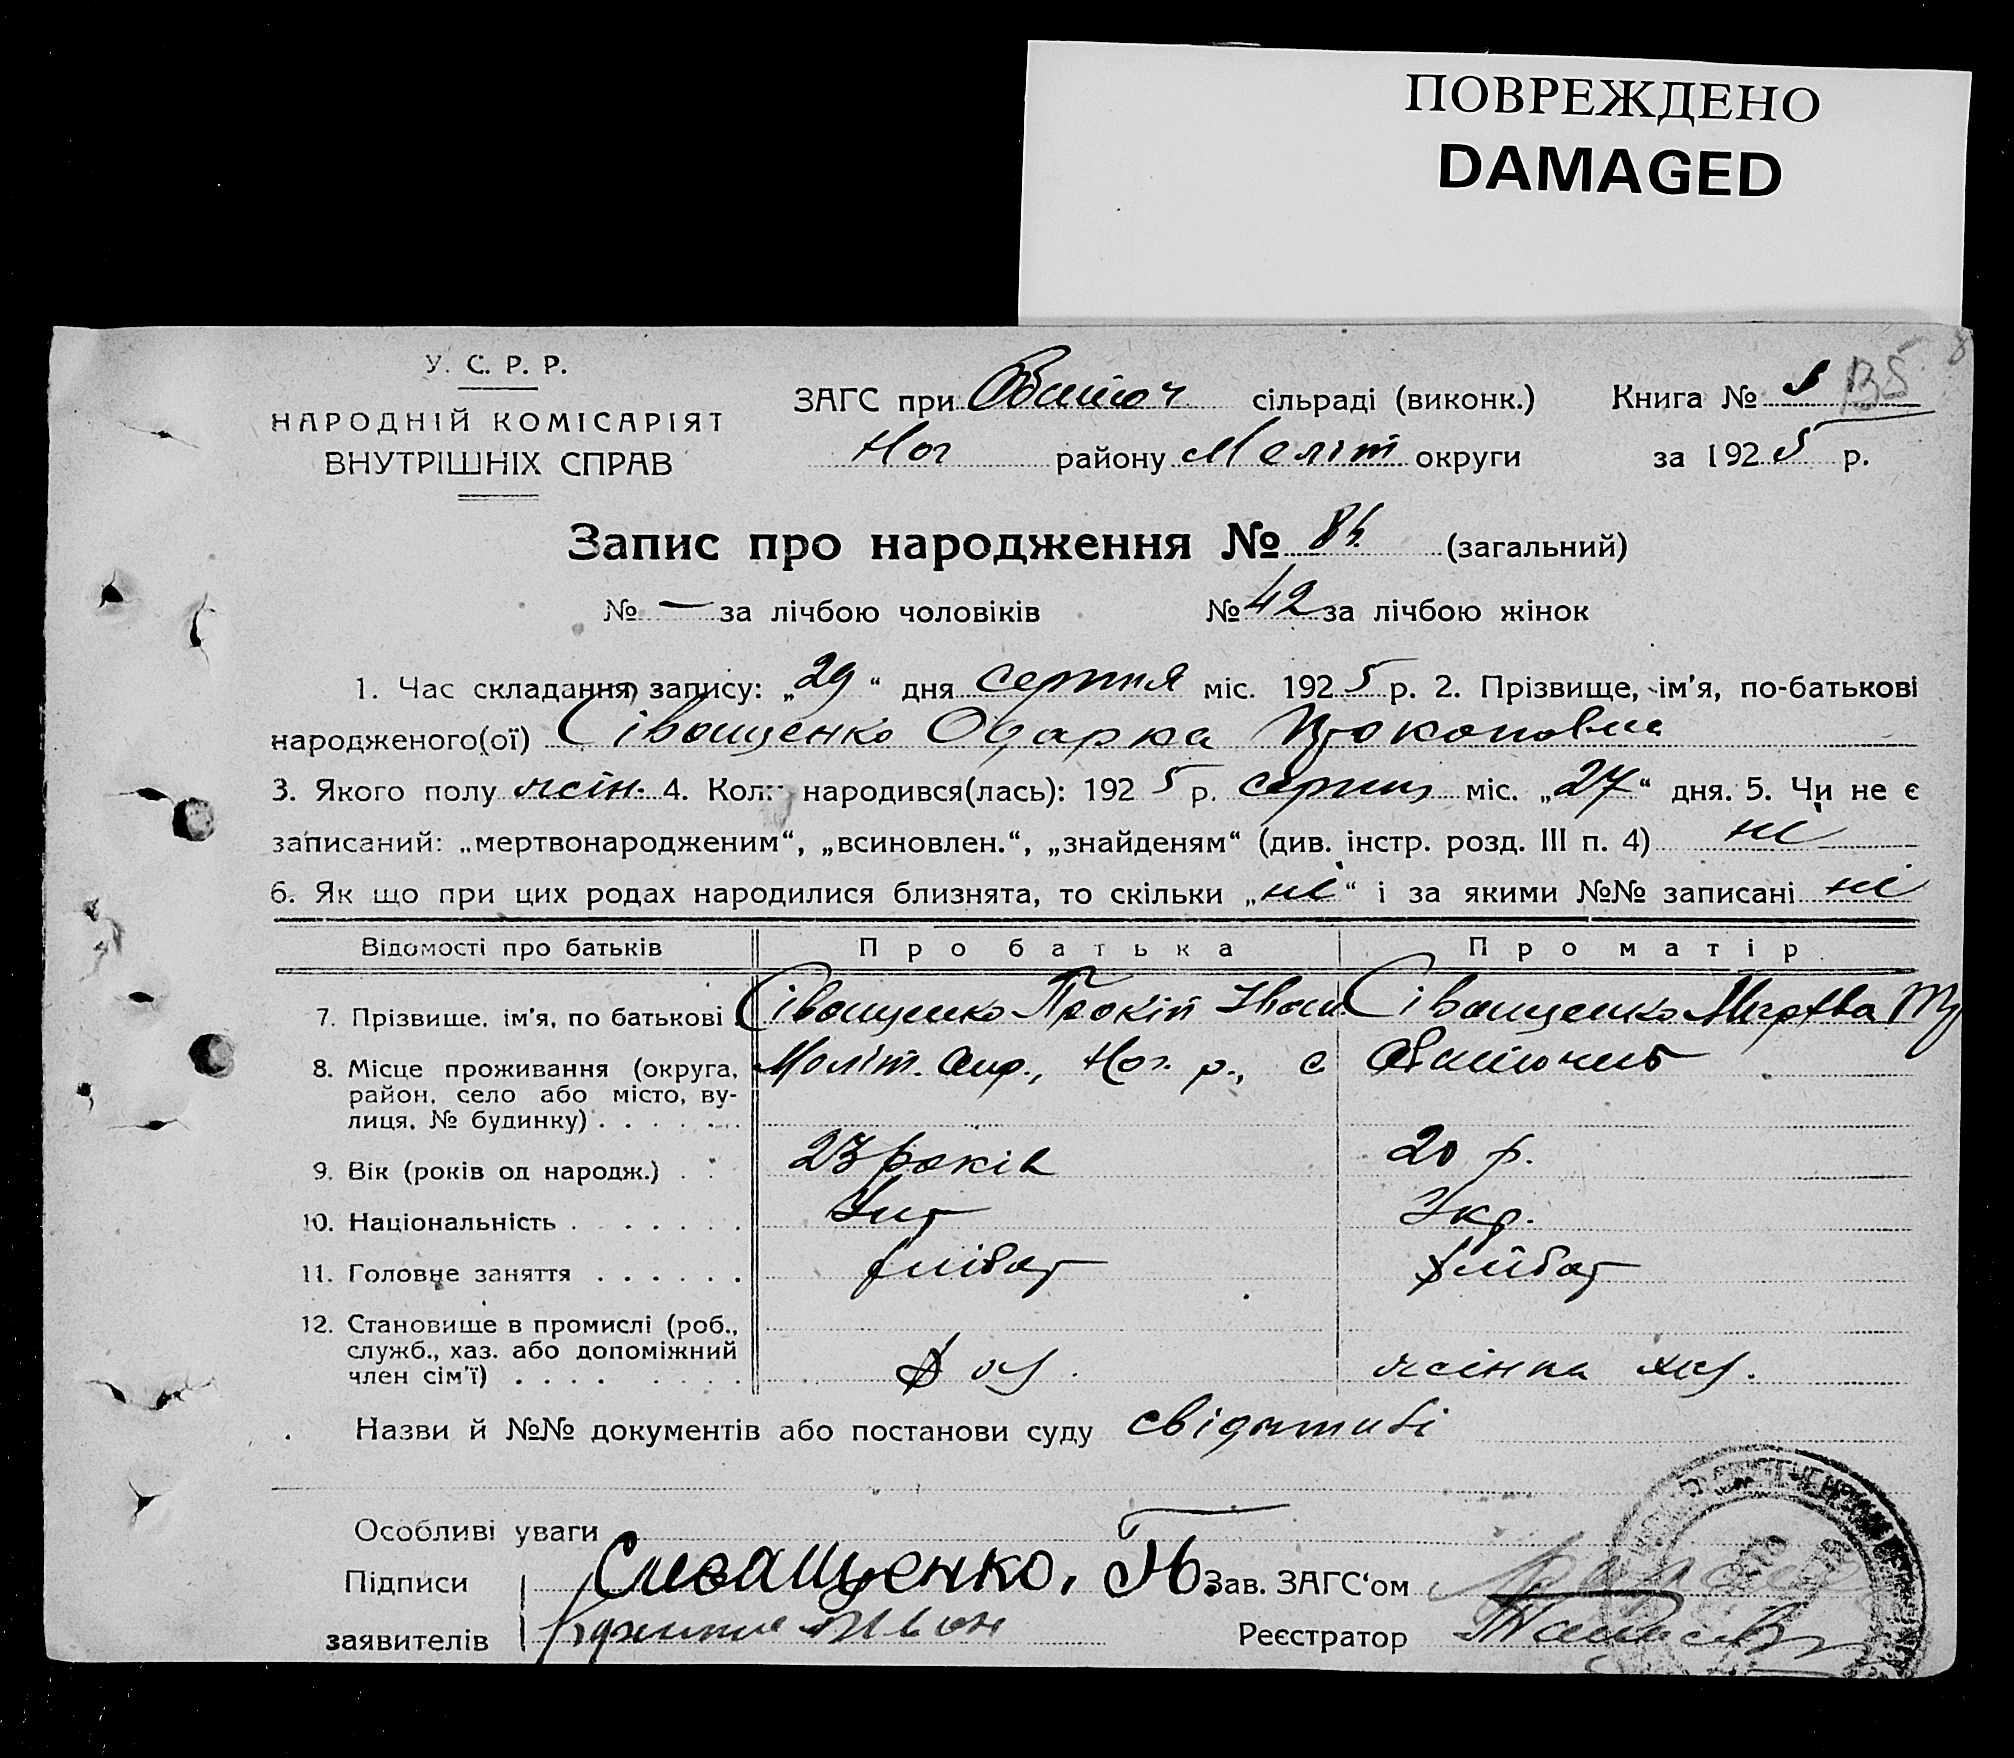 ПОВРЕЖДЕНО
DAMAGED
У. С. Р. Р.
НАРОДНІЙ КОМІСАРІЯТ
ВНУТРІШНІХ СПРАВ
ЗАГС при сільраді (виконк.) Книга №
Ног району Меліт округи за 1925 р.
Запис про народження № (загальний)
№ — за лічбою чоловіків № 42 за лічбою жінок
1. Час складання запису: „29“ дня серпня міс. 1925 р. 2. Прізвище, ім'я, по-батькові
народженого(ої) Сіващенко Одарка Прокоповна
3. Якого полу жін. 4. Коли народився(лась): 1925 р. серпня міс. „27“ дня. 5. Чи не є
записаний: „мертвонародженим“, „всиновлен.“, „знайденям“ (див. інстр. розд. III п. 4) ні
6. Як що при цих родах народилися близнята, то скільки „ні“ і за якими №№ записані ні
Відомості про батьків Про батька Про матір
7. Прізвище, ім'я, по батькові Сіващенко Прокіп Іван Сіващенко
8. Місце проживання (округа, Меліт. окр., Ног. р., с
район, село або місто, ву-
лиця, № будинку)
9. Вік (років од народж.) 23 років 20 р.
10. Національність Укр Укр.
11. Головне заняття хлібор хлібор
12. Становище в промислі (роб.,
служб., хаз. або допоміжний
член сім'ї) хаз. жінка хаз.
Назви й №№ документів або постанови суду
Особливі уваги
Підписи Сиващенко. Зав. ЗАГС'ом
заявителів Реєстратор